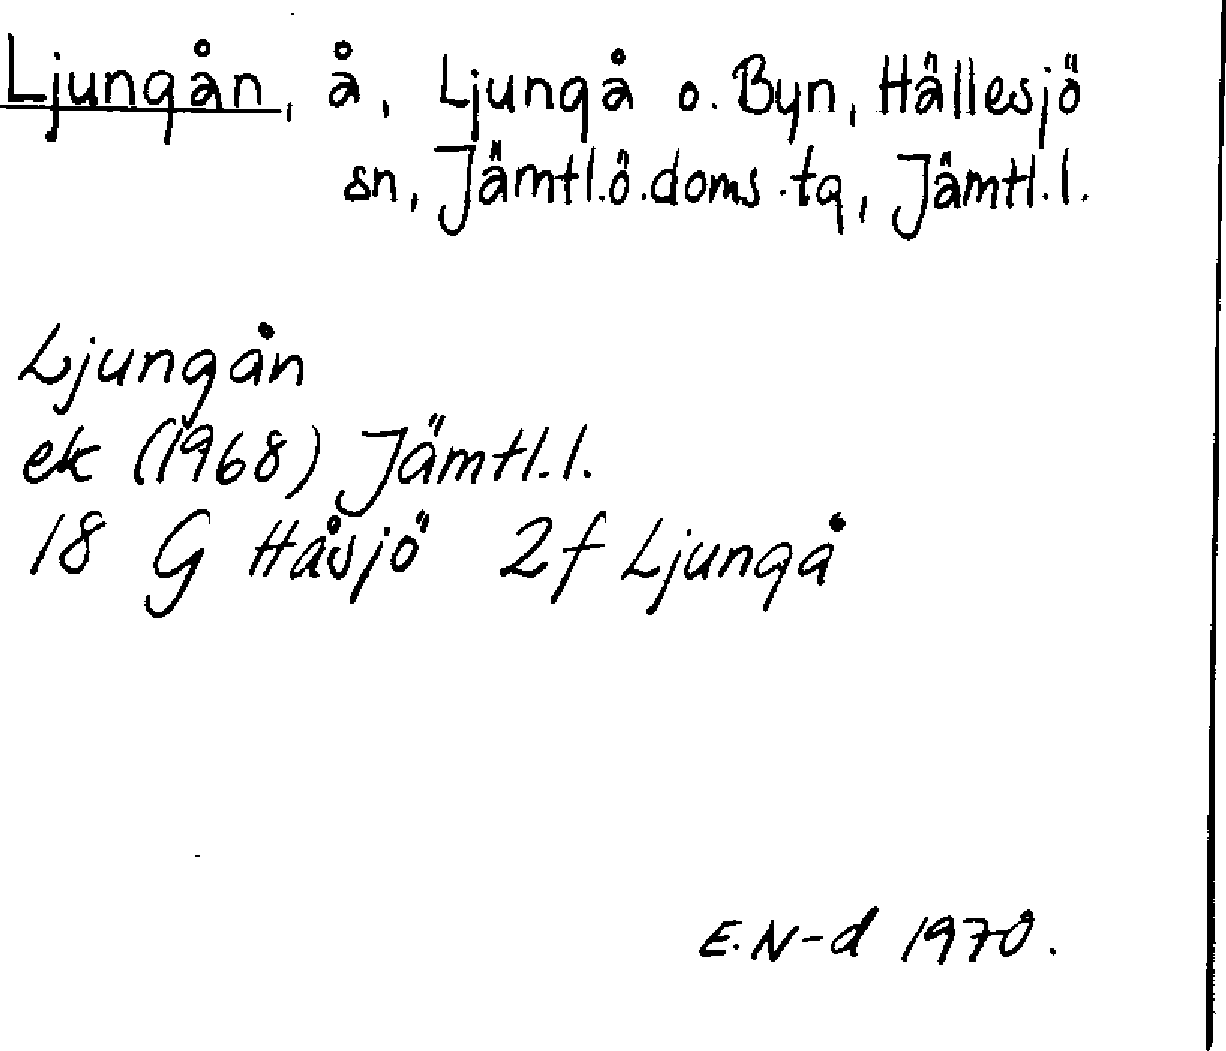 Ljungån, å, Ljungå o. Byn, Hällesjö
sn, Jämtl.ö.doms.tg, Jämtl.l.
Ljungån
ek (1968) Jämtl.l.
18 G Håsjö 2f Ljungå
E.N-d 1970.